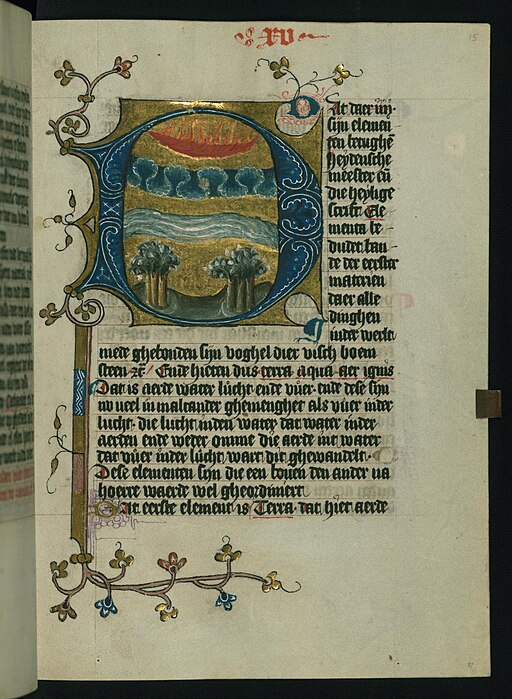 XV
15
Dat daer iiij
sijn elemen
ten tuughē
heydensche
meester eñ
die heylige
scrift Ele
menta be
dudet lau
te der eerster
materien
daer alle
dinghen
In der werlt
mede ghebonden sijn voghel dier visch boem
steen ꝛc̄ Ende hieten dus terra aqua aer ignis
Dat is aerde water lucht ende vuer ende dese sijn
in malcander ghemenghet als vuer inder
lucht die lucht inden water dat water inder
aerden ende weder omme die aerde int water
dat vuer inder lucht wart die ghewandelt
Dese elementen sijn die een bouen den ander na
hoere waerde wel gheordiniert
Dat eerste element is Terra dat hiet aerde